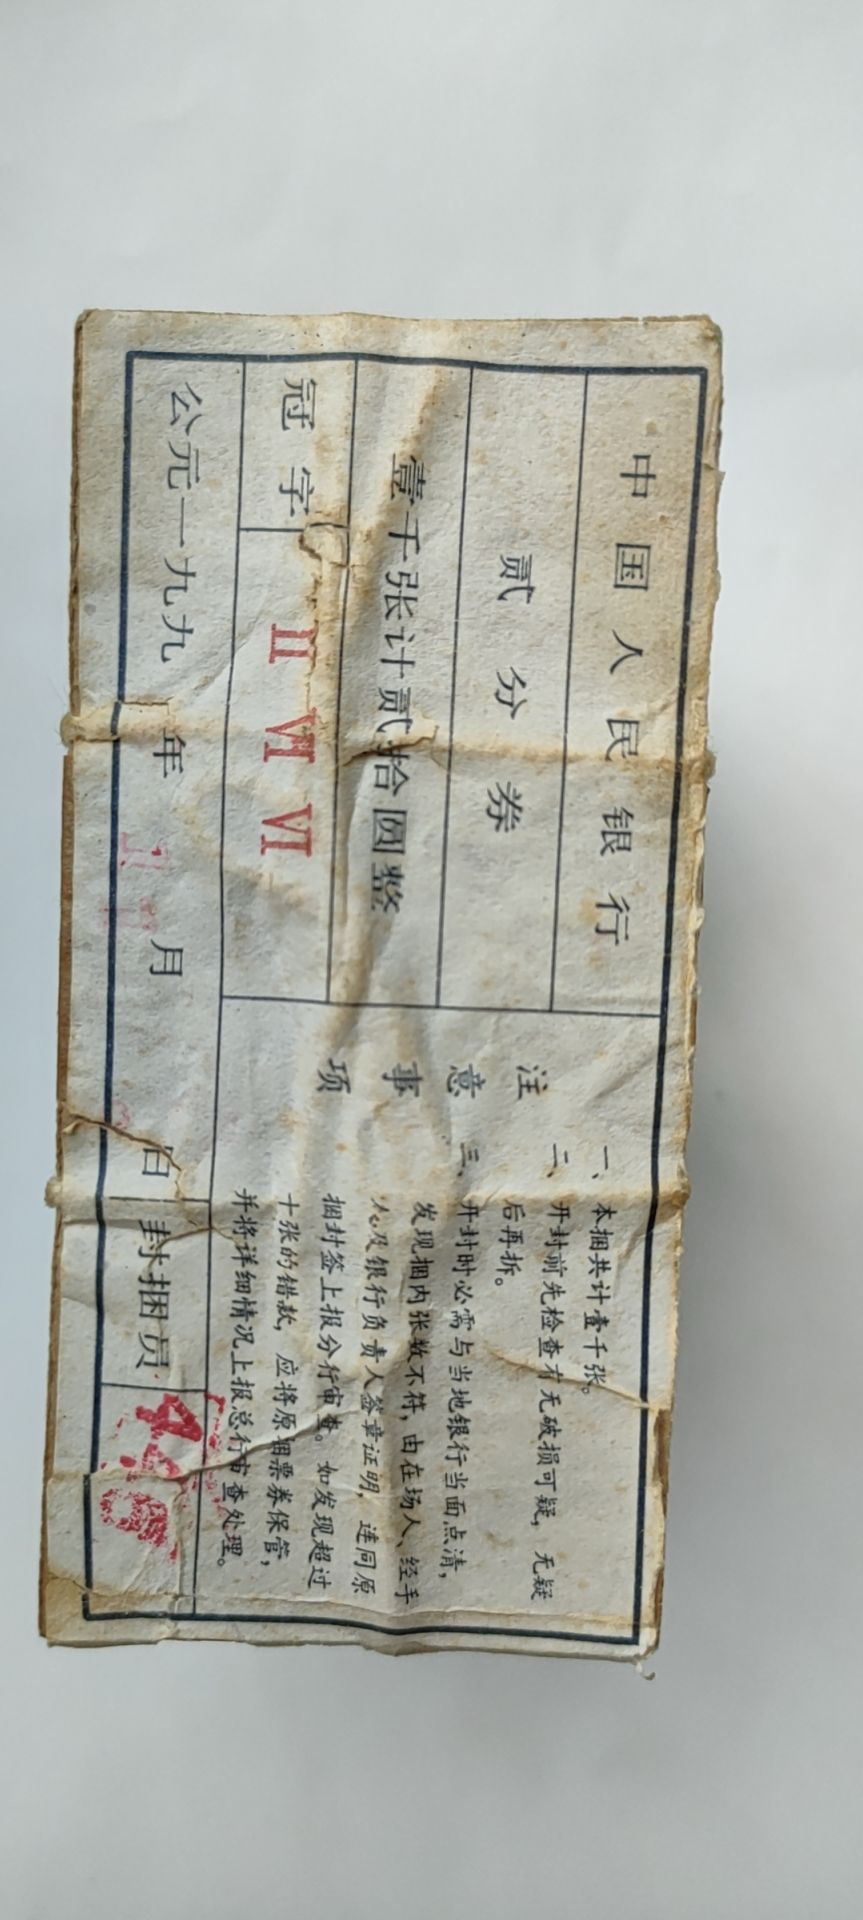 中国人民银行
贰分券
壹千张计贰拾圆整
冠字 II VI VI
公元一九九 年 月 日 封捆员
注意事项
一、本捆共计壹千张。
二、开封前先检查有无破损可疑，无疑
后再拆。
三、开封时必需与当地银行当面点清，
发现捆内张数不符，由在场人、经手
人及银行负责人签章证明，连同原
捆封签上报分行审查。如发现超过
十张的错款，应将原捆票券保管，
并将详细情况上报总行审查处理。